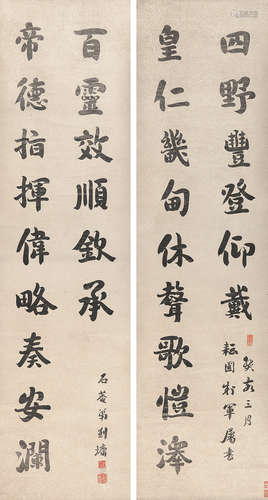 四野豐登仰戴
皇仁畿甸休聲歌愷澤
癸亥三月
耘圃將軍屬書
百靈效順欽承
帝德指揮偉略奏安瀾
石菴弟劉墉